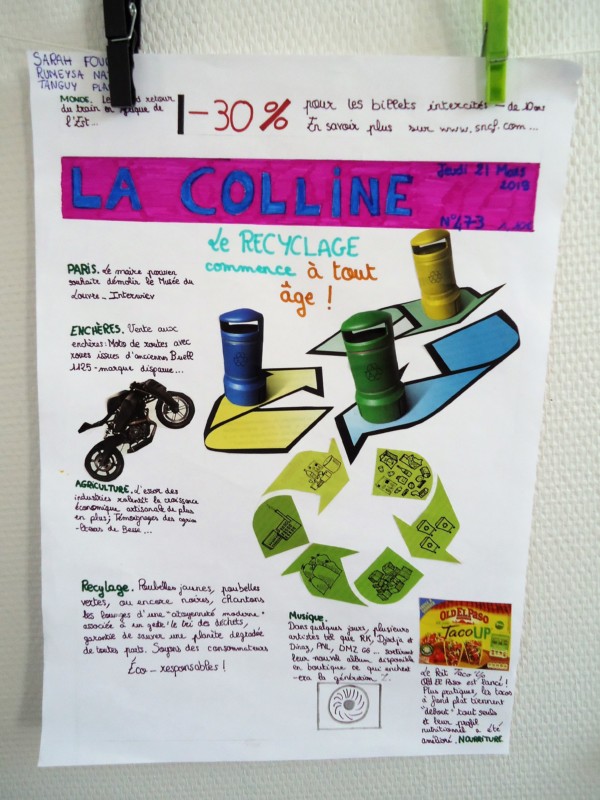 SARAH
RUMEYSA
TANGUY
MONDE. Le retour
du train en de
l'Est...
-30% pour les billets intercités de 10ans
En savoir plus sur www.sncf.com...
LA COLLINE
Jeudi 21 Mars
2013
N°473
Le RECYCLAGE
commence à tout
âge !
PARIS. Le maire
souhaite démolir le Musée du
Louvre - Interview
ENCHÈRES. Vente aux
enchères: Moto de routes avec
issues d'anciennes Buell
1125 - marque disparue...
AGRICULTURE. L'essor des
industries ralentit la croissance
économique artisanale de plus
en plus; Témoignages des agric-
de
Recylage. Poubelles jaunes, poubelles
vertes, ou encore noires, chantons
les louanges d'une "citoyenneté moderne"
associée à un geste: le tri des déchets,
garantie de sauver une planète dégradée
de toutes parts. Soyons des consommateurs
Éco-responsables !
Musique.
Dans quelques jours, plusieurs
artistes tel que RK, Djadja et
Dinaz, PNL, DMZ GG... sortiront
leur nouvel album disponible
en boutique ce qui enchant
-era la génération Z.
OLD EL PASO
TACO UP
Le Kit Taco Up
Old El Paso est lancé !
Plus pratiques, les tacos
à fond plat tiennent
"debout" tout seuls
et leur profil
nutritionnel a été
amélioré. NOURRITURE